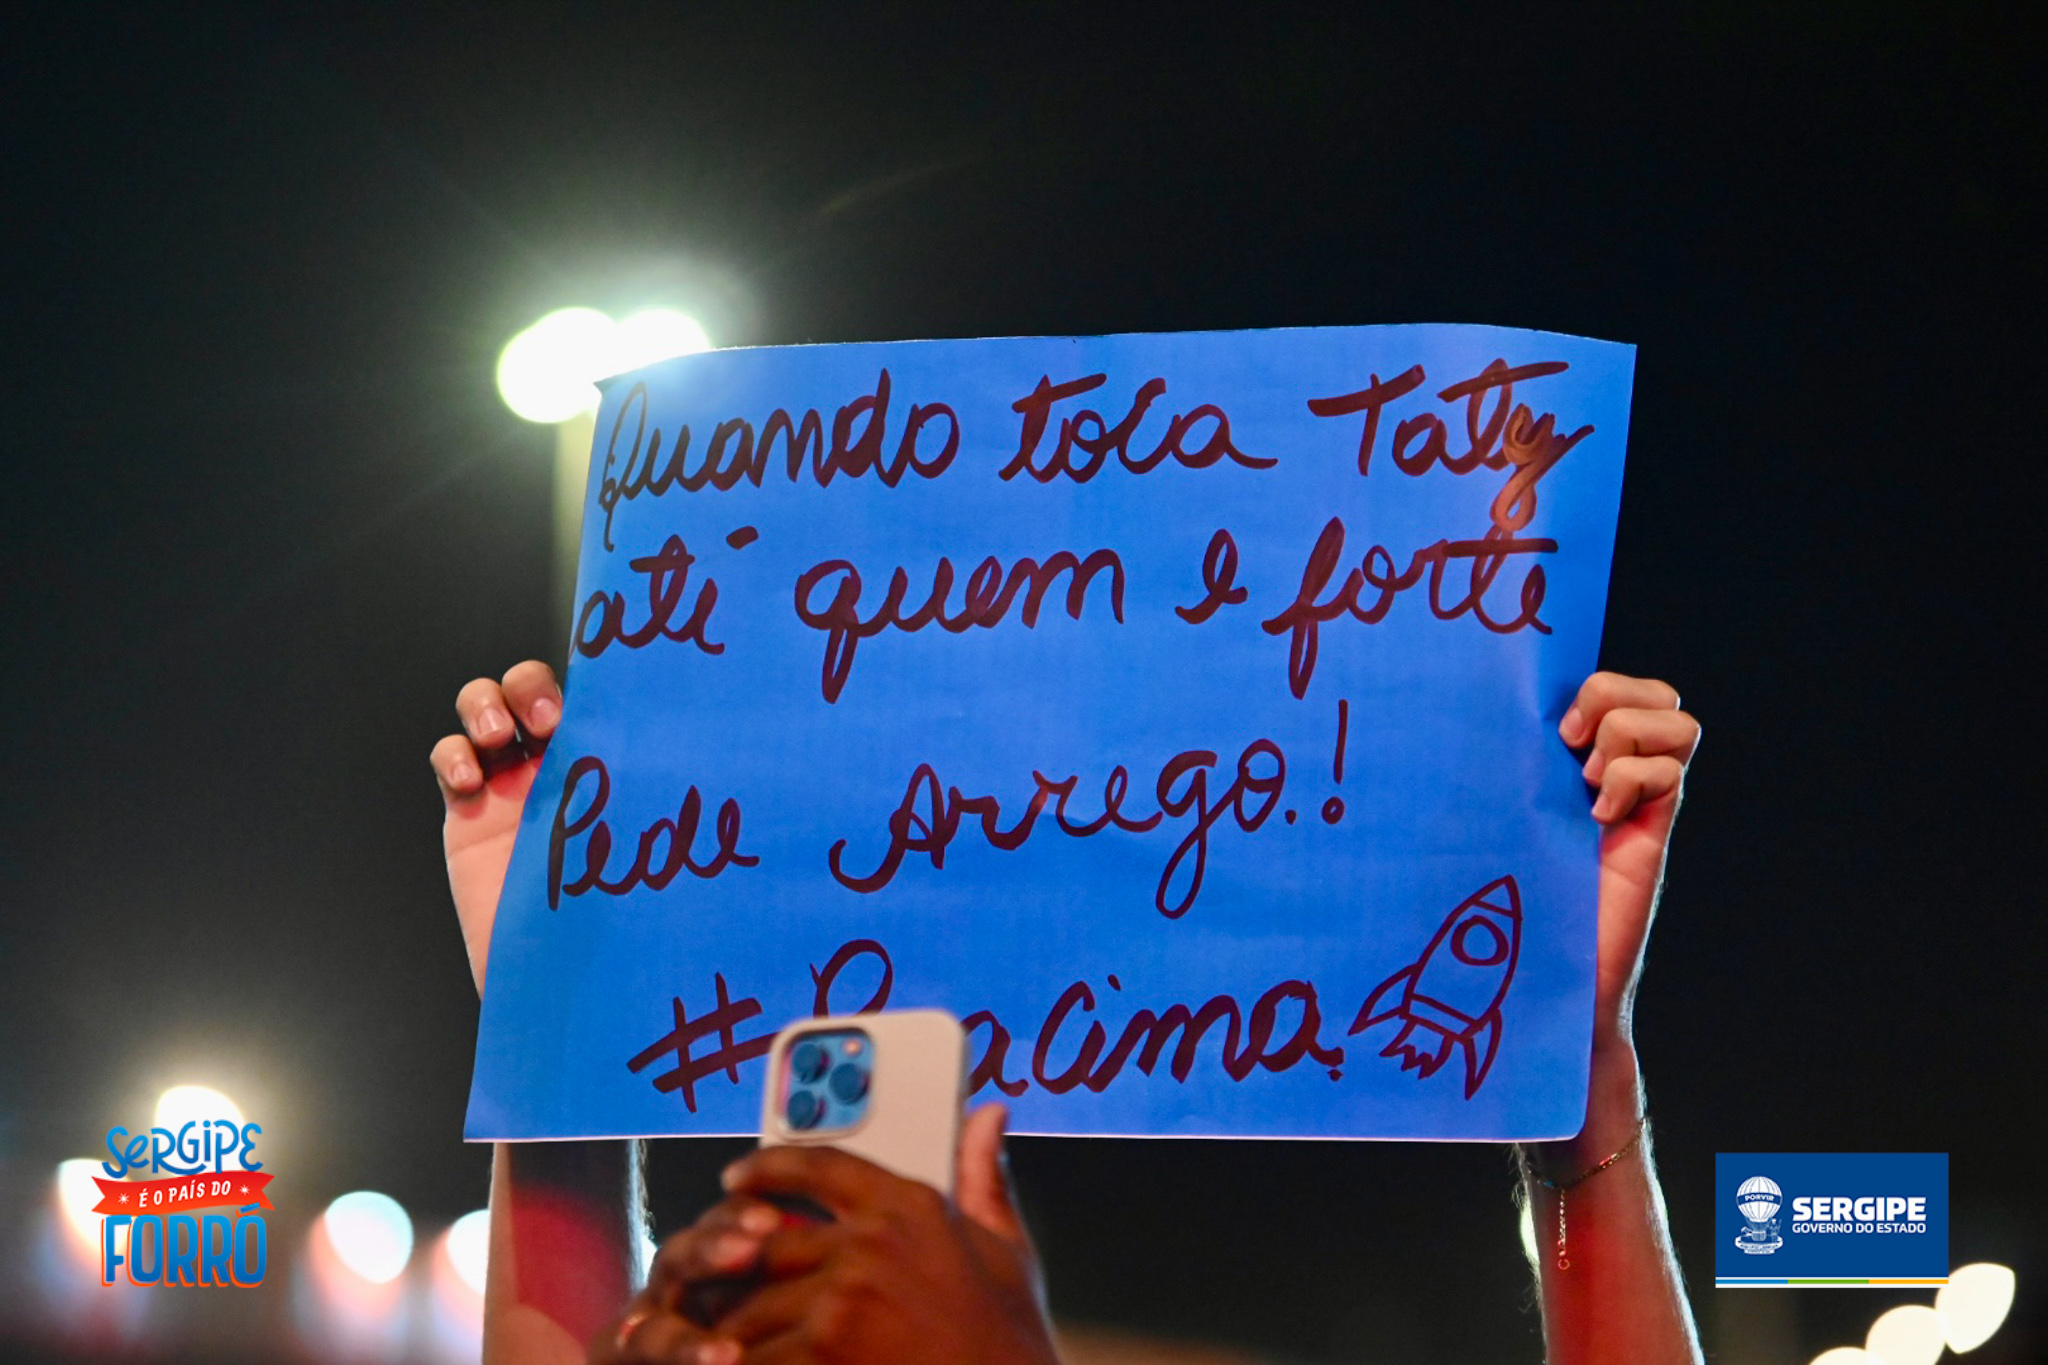 Quando toca Taty
até quem e forte
Pede Arrego.!
SERGIPE
É O PAÍS DO
FORRÓ
PORVIR
SERGIPE
GOVERNO DO ESTADO